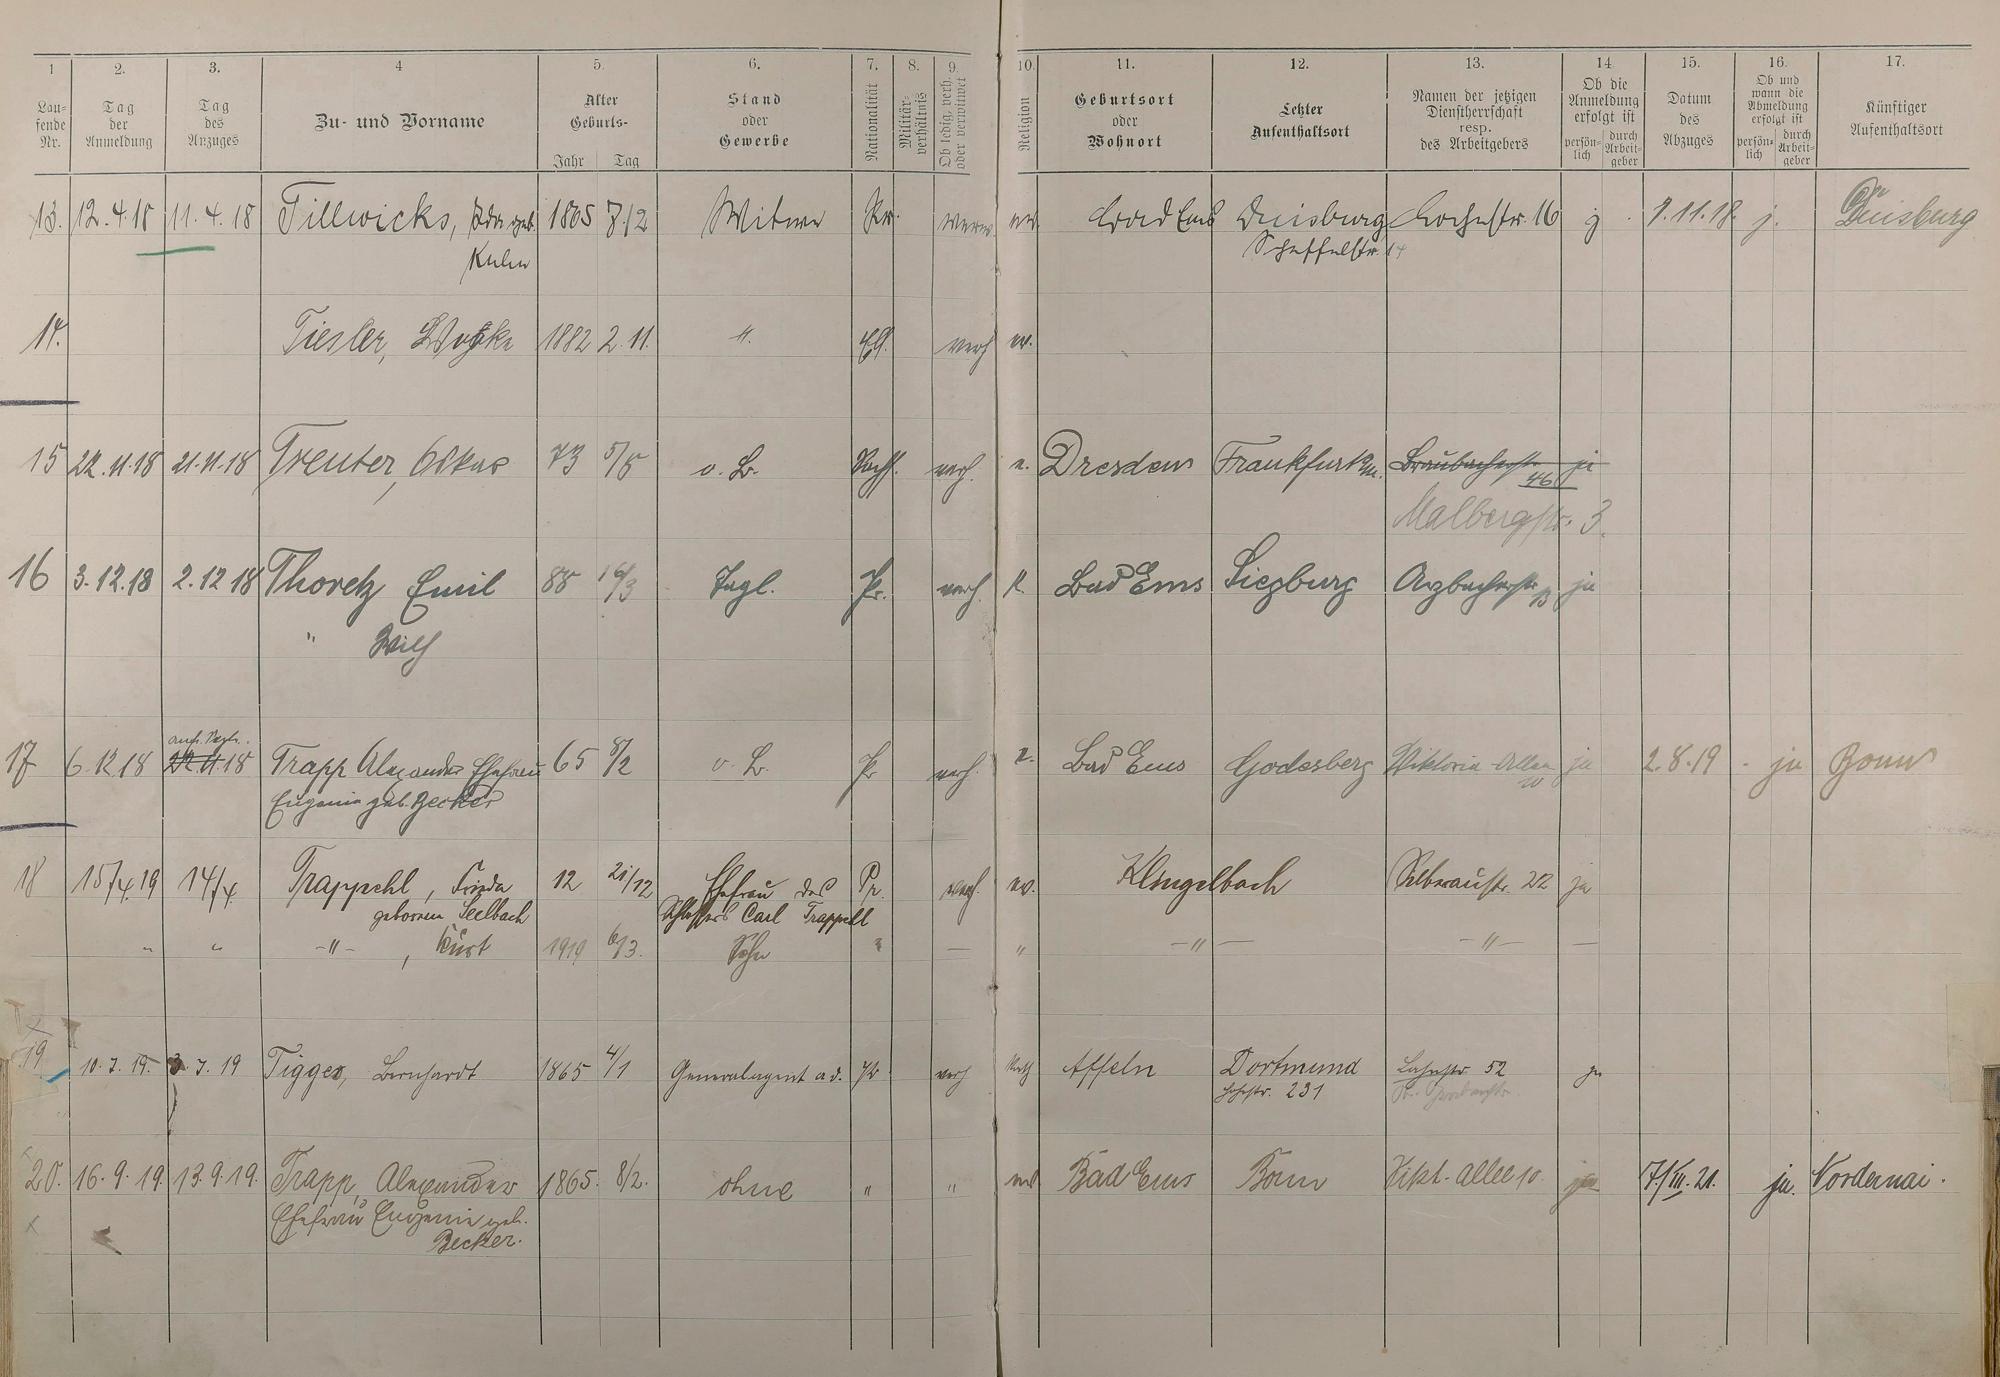 1 2. 3. 4 5. 6. 7. 8. 9. 10. 11. 12. 13. 14. 15. 16. 17.
Lau-fende Nr.
Tag der Anmeldung
Tag des Anzuges
Zu- und Vorname
Alter Geburts- Jahr Tag
Stand oder Gewerbe
Nationalität
Militär-verhältnis
Ob ledig, verh. oder verwitwet
Religion
Geburtsort oder Wohnort
Letzter Aufenthaltsort
Namen der jetzigen Dienstherrschaft resp. des Arbeitgebers
Ob die Anmeldung erfolgt ist persön-lich durch Arbeit-geber
Datum des Abzuges
Ob und wann die Abmeldung erfolgt ist persön-lich durch Arbeit-geber
Künftiger Aufenthaltsort
13. 12.4.18 11.4.18 Tillwicks, geb. 1865 7/2 Witwe Pr. Bad Ems Duisburg 16 j. 9.11.18 j. Duisburg
Scheffelstr. 14
14. Tiesler, 1882 2.11. " verh
15 22.11.18 21.11.18 Treuter, Oskar 73 5/5 o. B. verh. Dresden Frankfurt a/m. Braubacherstr. 46 ja
Malbergstr. 3.
16 3.12.18 2.12.18 Thoretz Emil 88 16/3 Tagl. Pr. verh. K. Bad Ems Siegburg Arzbacherstr. 13 ja
"
17 6.12.18 22.11.18 Trapp Alexander Ehefrau 65 8/2 o. B. Pr verh. Bad Ems Godesberg Viktoria-Allee 10 ja 2.8.19 - ja Bonn
Eugenie geb. Becker
18 15/4.19 14/4 Trappehl, Frieda 12 21/12 Ehefrau des Pr. verh. ev. Klingelbach Silberaustr. 22 ja
geborene Seelbach Schlossers Carl Trappehl
" " -"- , Kurt 1919 6/3. Sohn " — " -"- -"- —
19 10.7.19. 3.7.19 Tigges, Bernhardt 1865 4/1 Generalagent a.d. Pr verh Kath Affeln Dortmund Lahnstr. 52 ja
Hohestr. 231
20. 16.9.19. 13.9.19. Trapp, Alexander 1865. 8/2. ohne " " Bad Ems Bonn Vikt.-Allee 10. ja 7/VII.21. ja. Nordernai.
Ehefrau Eugenie geb.
Becker.